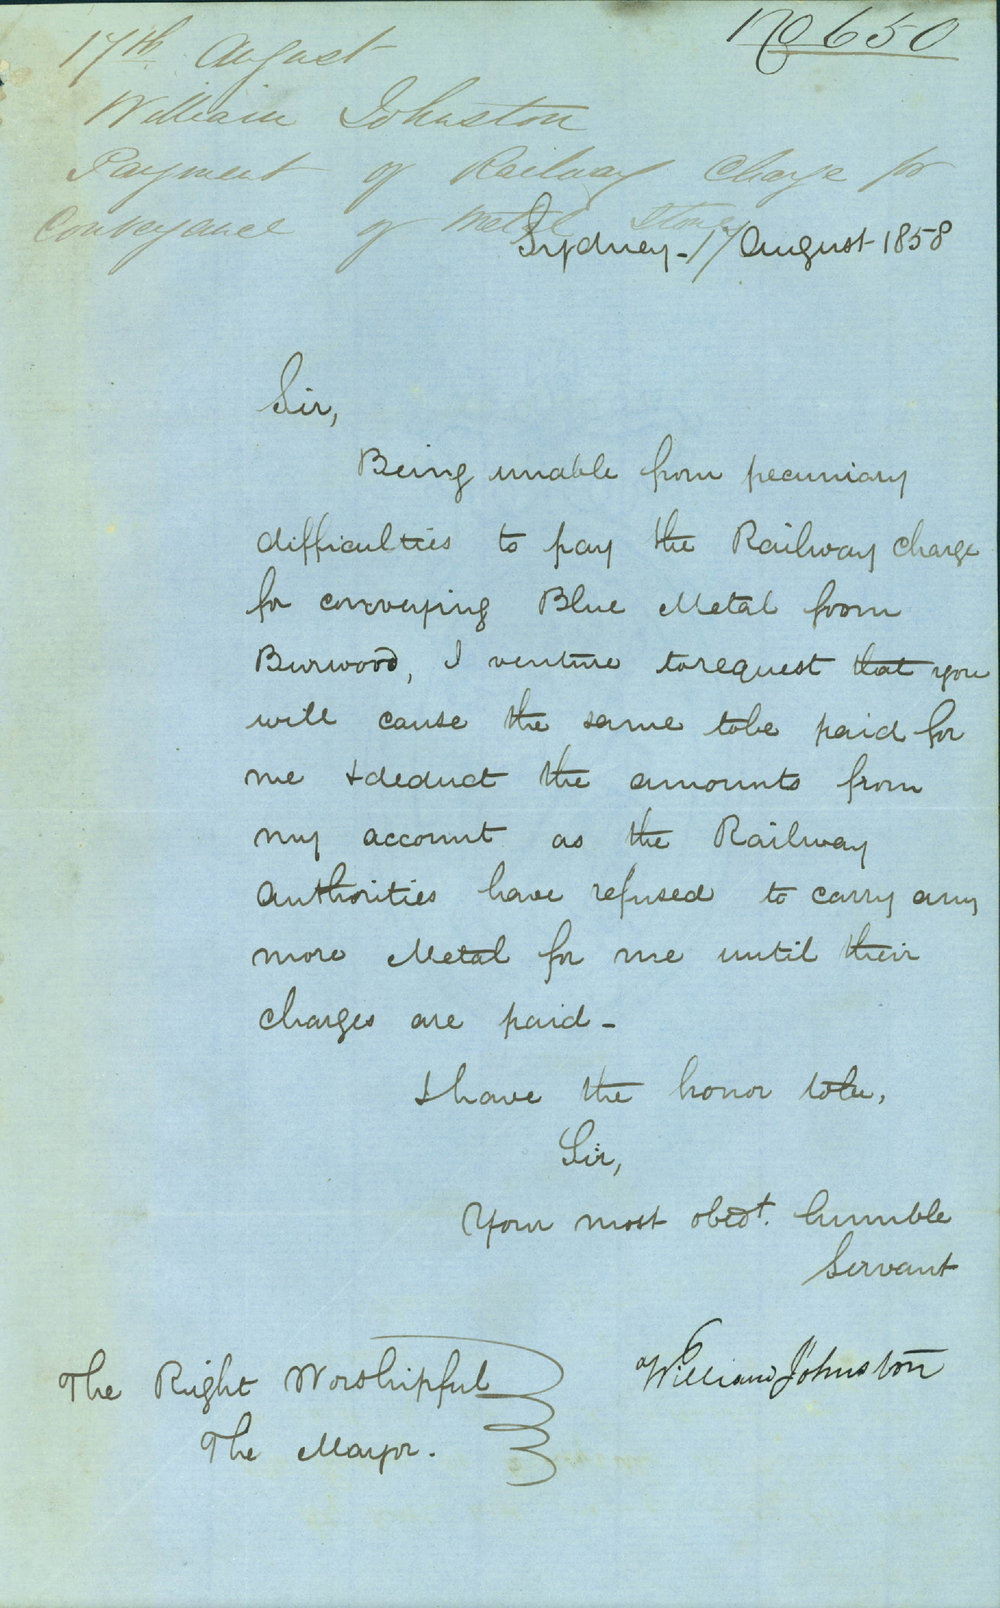 17th August
No 650
William Johnston
Payment of Railway Charge for
Conveyance of Metal Stone
Sydney - 17 August 1858
Sir,
Being unable from pecuniary
difficulties to pay the Railway charge
for conveying Blue Metal from
Burwood, I venture to request that you
will cause the same to be paid for
me & deduct the amounts from
my account as the Railway
Authorities have refused to carry any
more Metal for me until their
charges are paid -
I have the honor to be,
Sir,
Your most obedt. humble
Servant
William Johnston
The Right Worshipful
The Mayor.